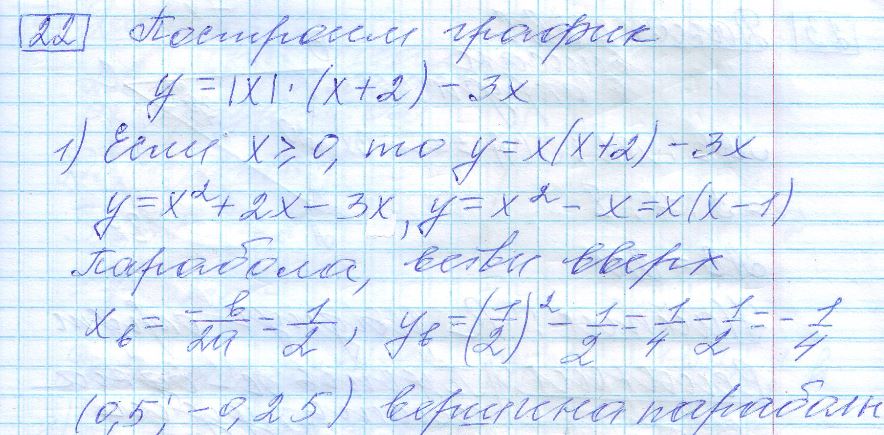 22 Построим график
y = |x| · (x+2) − 3x
1) Если x ≥ 0, то y = x(x+2) − 3x
y = x² + 2x − 3x, y = x² − x = x(x−1)
Парабола, ветви вверх
xв = −b/2a = 1/2, yв = (1/2)² − 1/2 = 1/4 − 1/2 = −1/4
(0,5; −0,25) вершина параболы